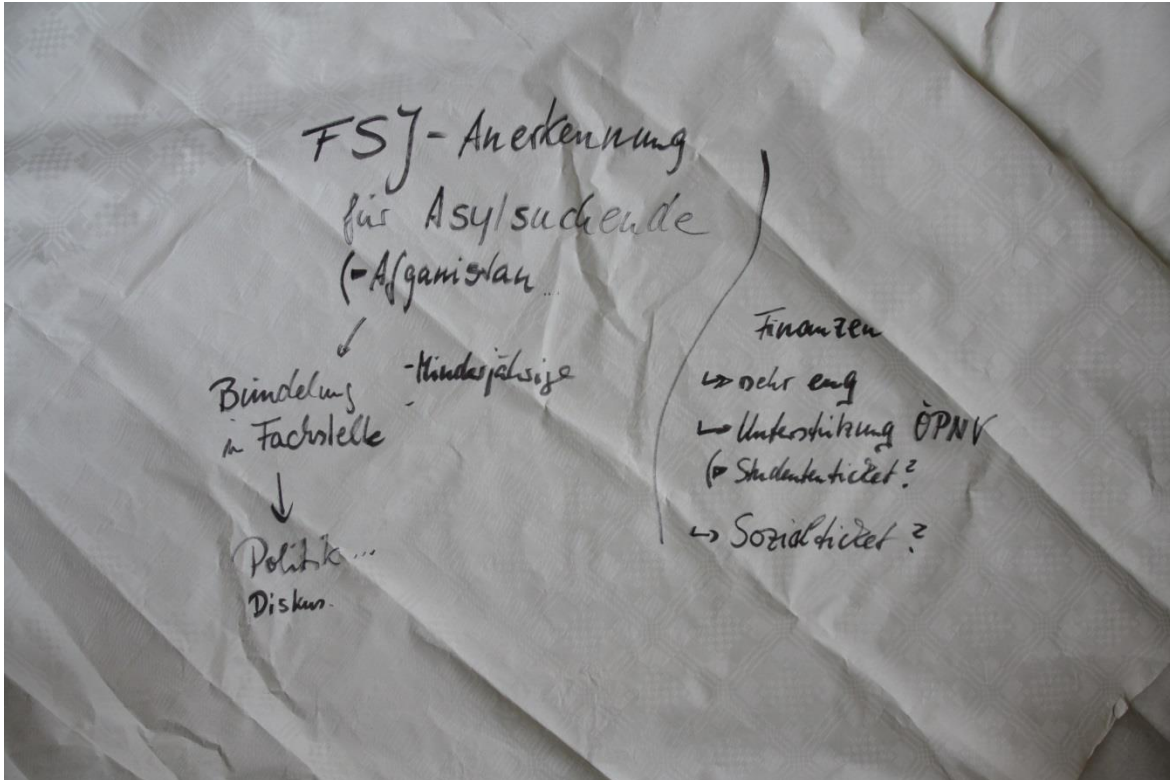 FSJ-Anerkennung
für Asylsuchende
(- Afganistan ...
- Minderjährige
-
Bündelung
in Fachstelle
Politik ...
Diskus.
Finanzen
↳ sehr eng
↳ Unterstützung ÖPNV
(↳ Studententicket?
↳ Sozialticket?